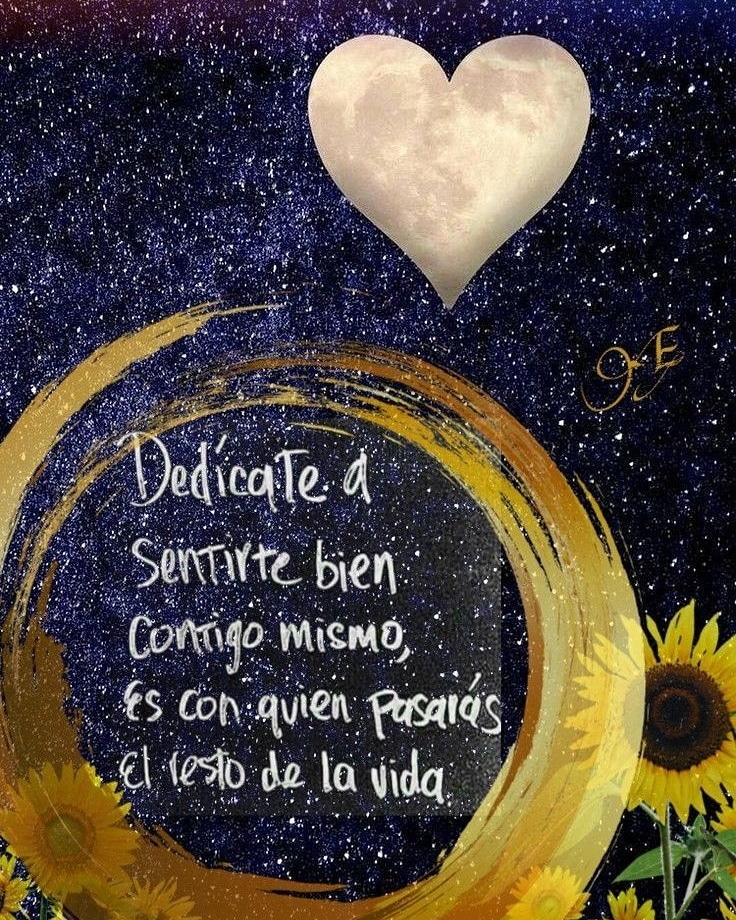 JE
Dedícate a
sentirte bien
contigo mismo,
es con quien pasarás
el resto de la vida.